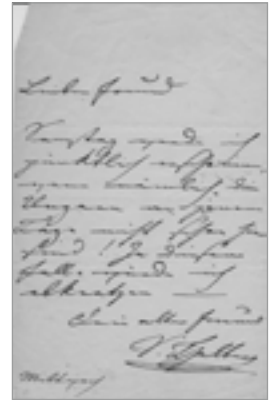 Lieber Freund
Samstag werde ich
pünktlich erscheinen,
wenn nämlich die
Ungarn an jenem
Tage nicht schon hier
sind! In diesem
Falle werde ich
abkratzen —
Dein alter Freund
Mittwoch